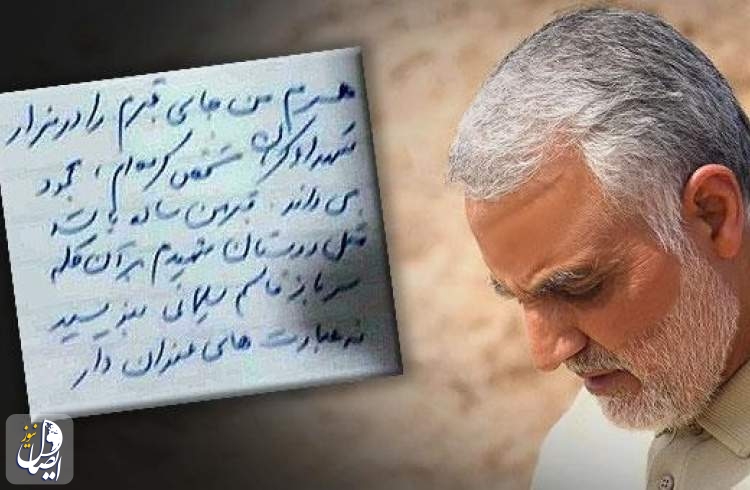 همسرم من جای قبرم را در مزار
شهدای کرمان مشخص کرده‌ام، محمود
می داند. قبر من ساده باشد
مثل دوستان شهیدم بر آن کلمه
سرباز قاسم سلیمانی بنویسید
نه عبارت های عنوان دار
ایصال نیوز